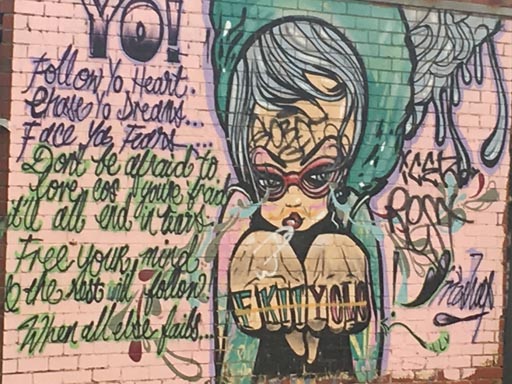 YO!
Follow Yo Heart.
Chase Yo Dreams...
Face Yo Fears...
Don't be afraid to
love cos you're afraid
it'll all end in tears.
Free your mind
& the rest will follow.
When all else fails...
FKIT YOLO